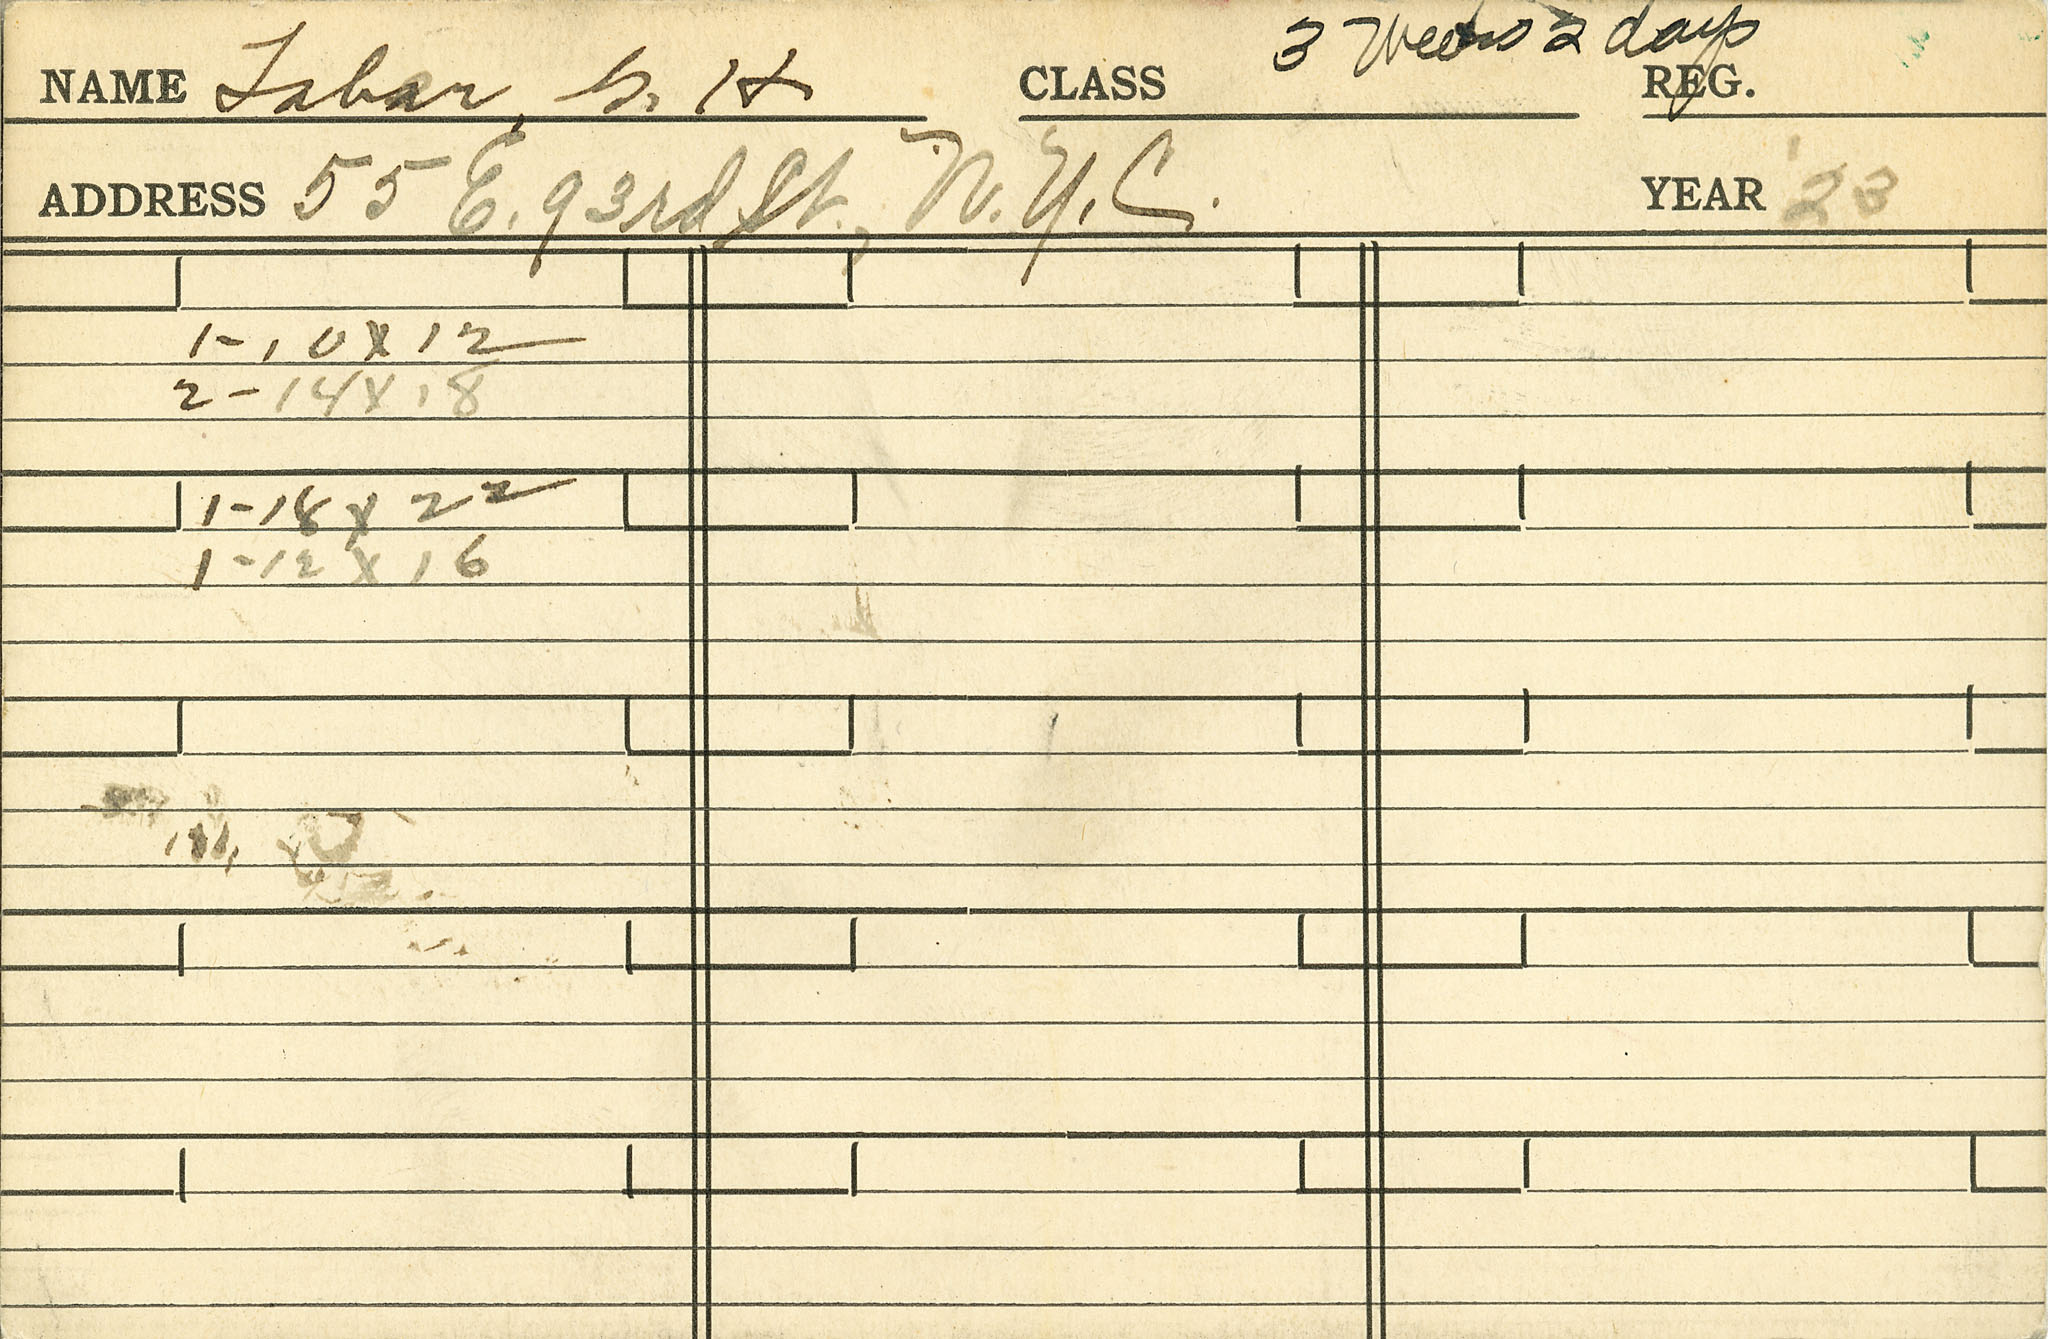 3 Weeks 2 days
NAME Labar, G. H CLASS REG.
ADDRESS 55 E. 93rd St., N.Y.C. YEAR '23
1-10x12
2-14x18
1-18x22
1-12x16